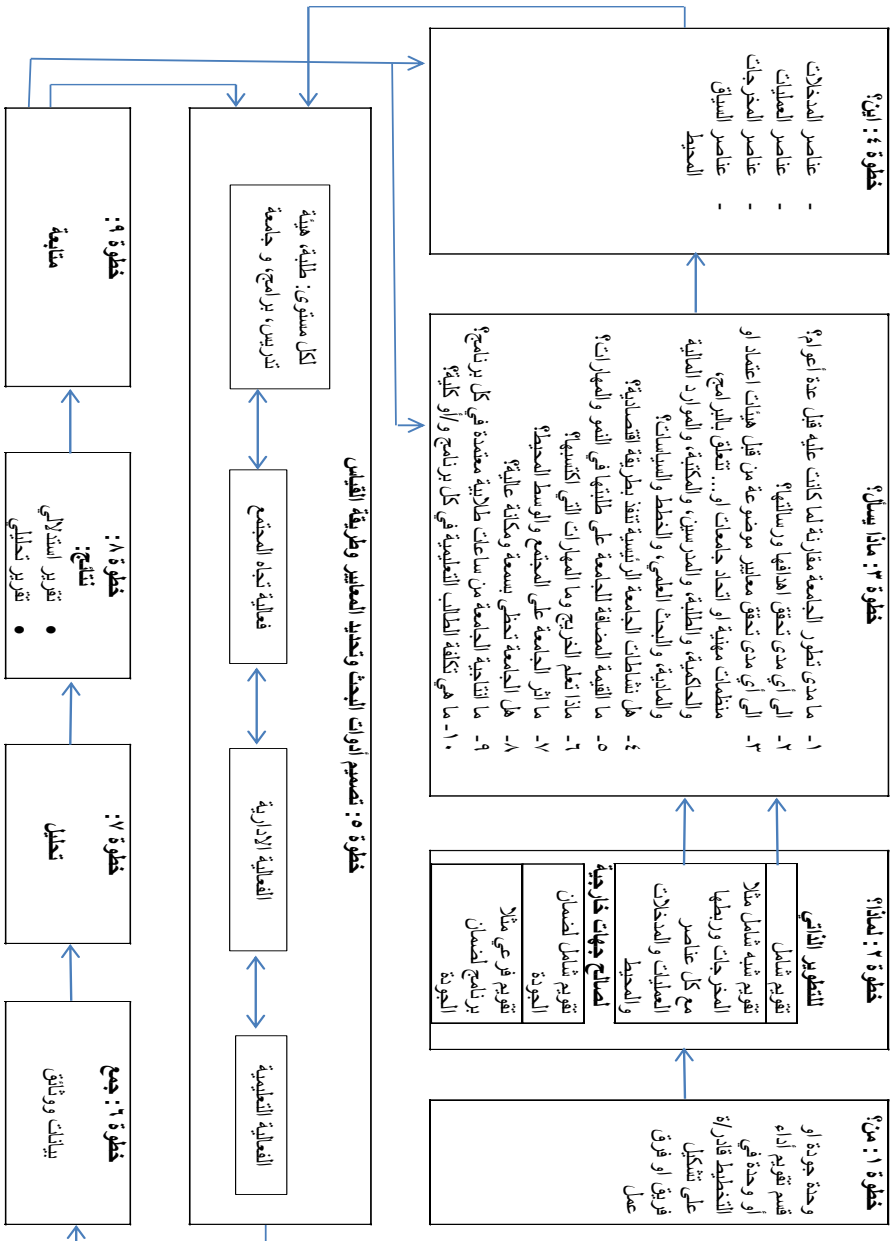 خطوة ١: من؟
وحدة جودة او
قسم تقويم أداء
أو وحدة في
التخطيط قادر/ة
على تشكيل
فريق او فرق
عمل
خطوة ٢: لماذا؟
للتطوير الذاتي
تقويم شامل
تقويم شبه شامل مثلا
المخرجات وربطها
مع كل عناصر
العمليات والمدخلات
والمحيط
لصالح جهات خارجية
تقويم شامل لضمان
الجودة
تقويم فرعي مثلا
برنامج لضمان
الجودة
خطوة ٣: ماذا يسأل؟
١- ما مدى تطور الجامعة مقارنة لما كانت عليه قبل عدة أعوام؟
٢- الى أي مدى تحقق اهدافها ورسالتها؟
٣- الى أي مدى تحقق معايير موضوعة من قبل هيئات اعتماد او
منظمات مهنية او اتحاد جامعات او... تتعلق بالبرامج،
والحاكمية، والطلبة، والمدرسين، والمكتبة، والموارد المالية
والمادية، والبحث العلمي، والخطط والسياسات؟
٤- هل نشاطات الجامعة الرئيسية تنفذ بطريقة اقتصادية؟
٥- ما القيمة المضافة للجامعة على طلبتها في النمو والمهارات؟
٦- ماذا تعلم الخريج وما المهارات التي اكتسبها؟
٧- ما اثر الجامعة على المجتمع والوسط المحيط؟
٨- هل الجامعة تحظى بسمعة ومكانة عالية؟
٩- ما انتاجية الجامعة من ساعات طلابية معتمدة في كل برنامج؟
١٠- ما هي تكلفة الطالب التعليمية في كل برنامج و/أو كلية؟
خطوة ٤: اين؟
- عناصر المدخلات
- عناصر العمليات
- عناصر المخرجات
- عناصر السياق
المحيط
خطوة ٥: تصميم أدوات البحث وتحديد المعايير وطريقة القياس
الفعالية التعليمية
الفعالية الادارية
فعالية تجاه المجتمع
لكل مستوى: طلبة، هيئة
تدريس، برامج، و جامعة
خطوة ٦: جمع
بيانات ووثائق
خطوة ٧:
تحليل
خطوة ٨:
نتائج:
• تقرير استدلالي
• تقرير تحليلي
خطوة ٩:
متابعة